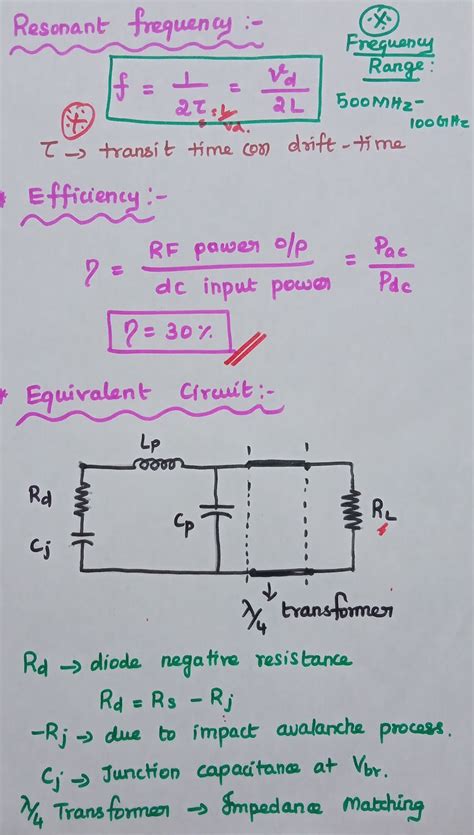 Resonant frequency :-
* Frequency Range :
500MHz - 100GHz
f = 1/2τ = Vd/2L
* τ = L/Vd
τ → transit time (or) drift-time
* Efficiency :-
η = RF power o/p / dc input power = Pac / Pdc
η = 30%
* Equivalent Circuit :-
Lp
Rd
Cj
Cp
RL
λ/4 transformer
Rd → diode negative resistance
Rd = Rs - Rj
-Rj → due to impact avalanche process.
Cj → Junction capacitance at Vbr.
λ/4 Transformer → Impedance Matching